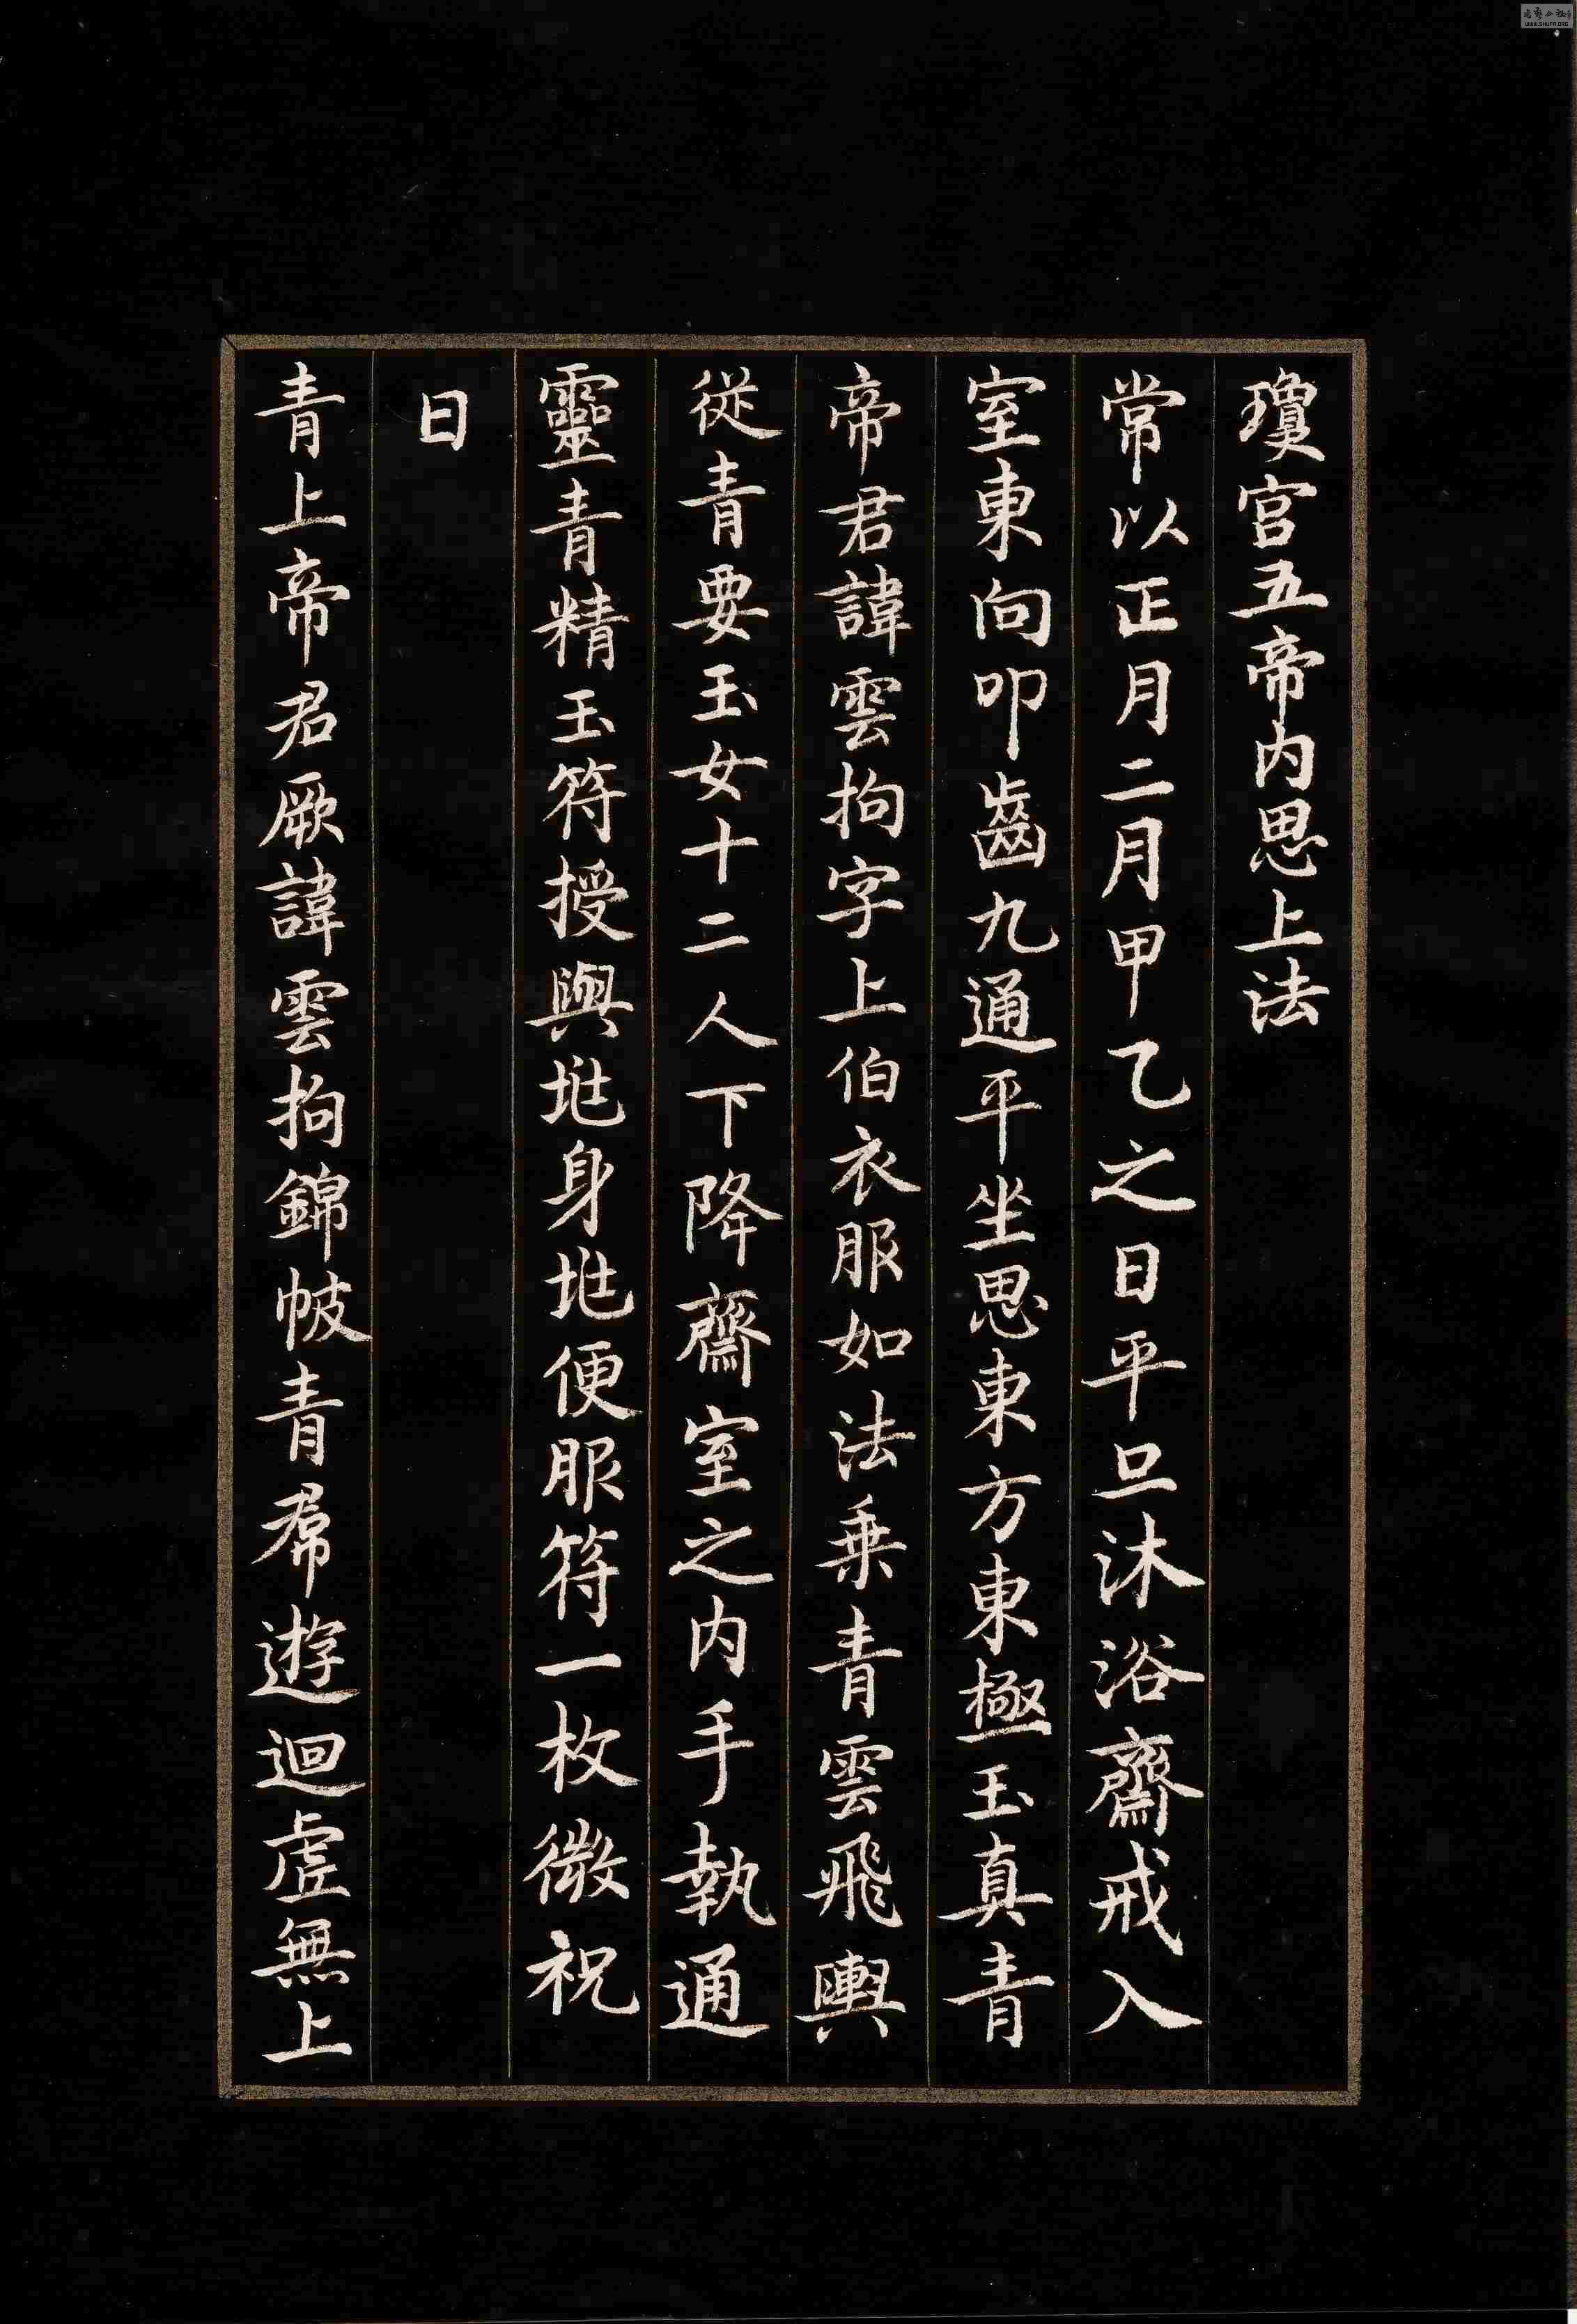 瓊宫五帝内思上法
常以正月二月甲乙之日平旦沐浴齋戒入
室東向叩齒九通平坐思東方東極玉真青
帝君諱雲拘字上伯衣服如法乗青雲飛輿
從青要玉女十二人下降齋室之内手執通
靈青精玉符授與兆身兆便服符一枚微祝
曰
青上帝君厥諱雲拘錦帔青帬遊迴虛無上
WWW.SHUFA.ORG